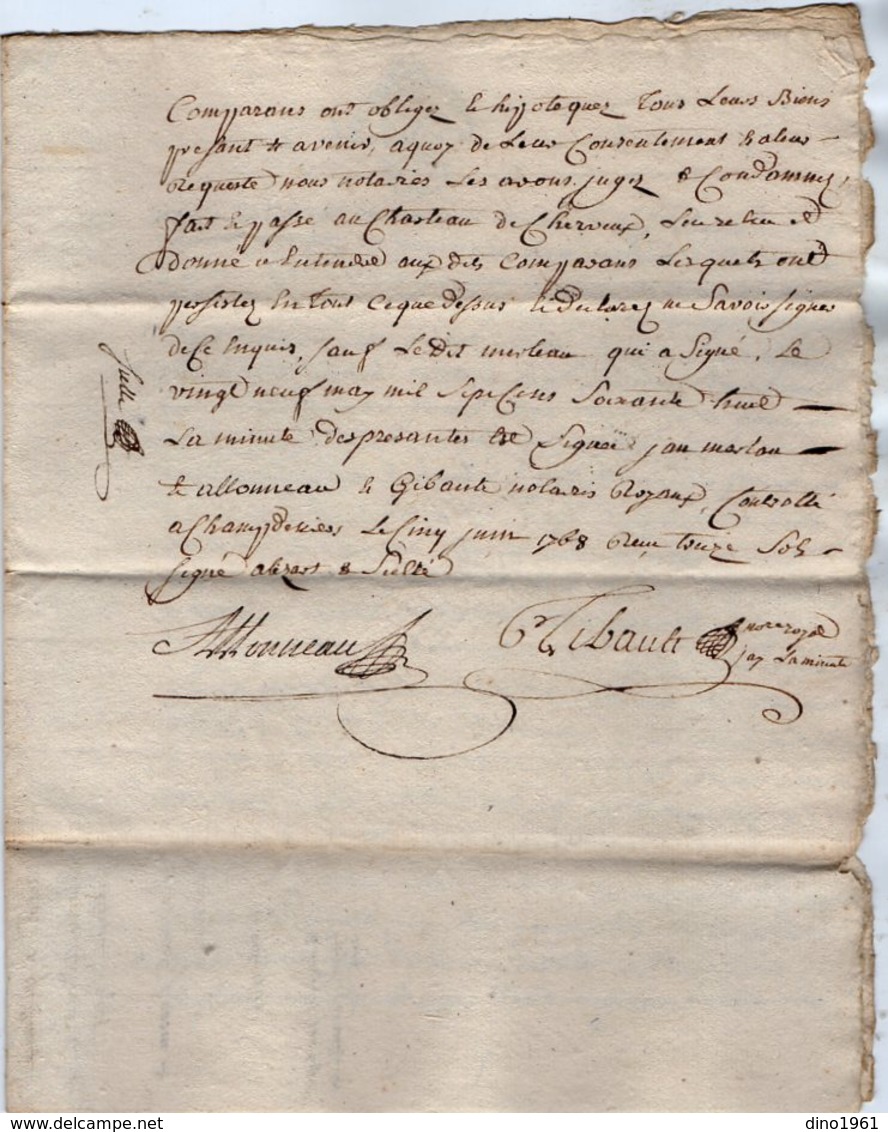 Comparans ont obligez & hipotequez tous Leurs Biens
presant & avenir, aquoy de Leur Consentement & aleur
Requeste nous notaires Les avons jugez & Condamnez,
fait & passé au Chasteau de Cherveux, Leu releu et
donné a Entendre aux dits Comparans Lesquels ont
persistez En tout Ceque dessus & declarez ne Savoir signer
de Ce Enquis, sauf Le dit merleau qui a Signé, Le
vingt neuf may mil Sept Cens Soixante huit
La minute des presantes Est Signée jan
& allonneau & Gibault notaires Royaux, Controllé
a Champdeniers Le Cinq juin 1768 Receu treize Sols
signé & Sellé
Sellé
Allonneau
Gibault
no.re royal
jay La minute
dino1961